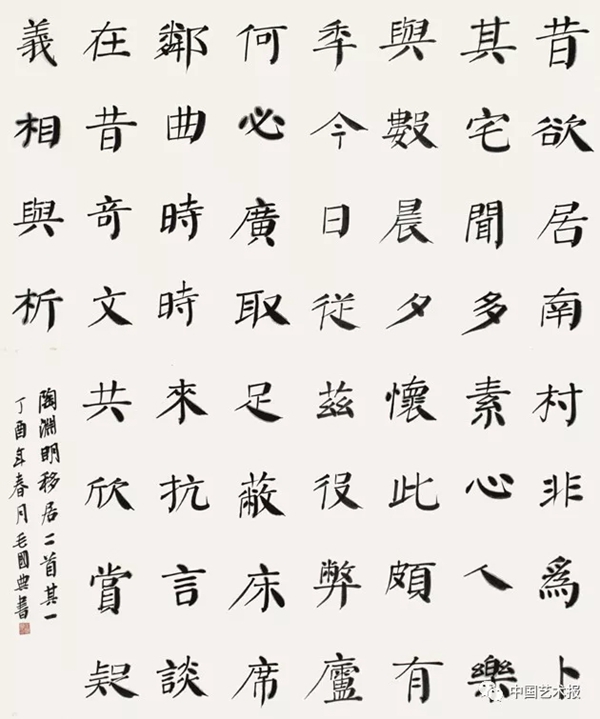 昔欲居南村非爲卜
其宅聞多素心人樂
與數晨夕懷此頗有
秊今日從茲役弊廬
何必廣取足蔽床席
鄰曲時時來抗言談
在昔奇文共欣賞疑
義相與析
陶淵明移居二首其一
丁酉年春月毛國典書
中国艺术报